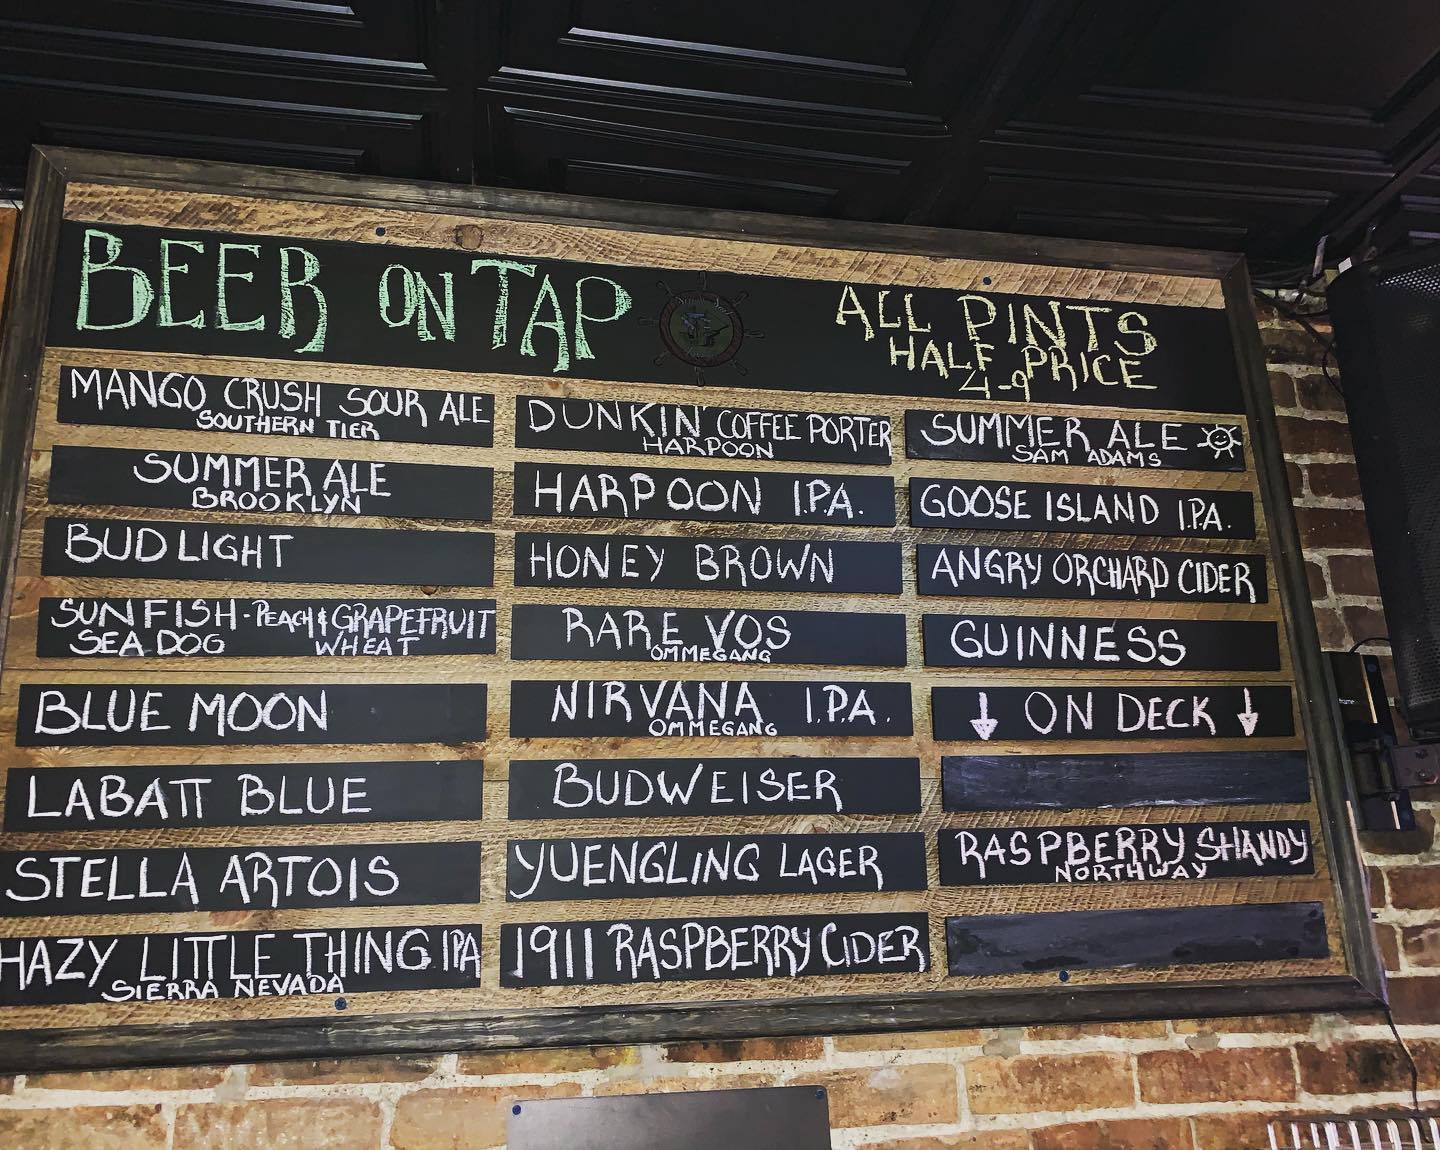 BEER ON TAP
ALL PINTS
HALF PRICE
4-9
MANGO CRUSH SOUR ALE
SOUTHERN TIER
SUMMER ALE
BROOKLYN
BUD LIGHT
SUNFISH - PEACH & GRAPEFRUIT
SEA DOG WHEAT
BLUE MOON
LABATT BLUE
STELLA ARTOIS
HAZY LITTLE THING IPA
SIERRA NEVADA
DUNKIN' COFFEE PORTER
HARPOON
HARPOON I.P.A.
HONEY BROWN
RARE VOS
OMMEGANG
NIRVANA I.P.A.
OMMEGANG
BUDWEISER
YUENGLING LAGER
1911 RASPBERRY CIDER
SUMMER ALE
SAM ADAMS
GOOSE ISLAND I.P.A.
ANGRY ORCHARD CIDER
GUINNESS
↓ ON DECK ↓
RASPBERRY SHANDY
NORTHWAY